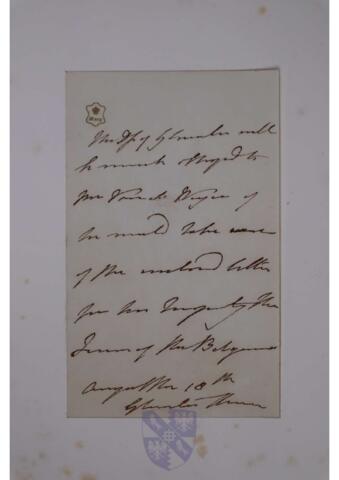 Mary
The Ds of Gloucester will
be much obliged to
Mr Van de Weyer if
he would take care
of the enclosed letter
for her Majesty the
Queen of the Belgians
August the 18th
Gloucester House